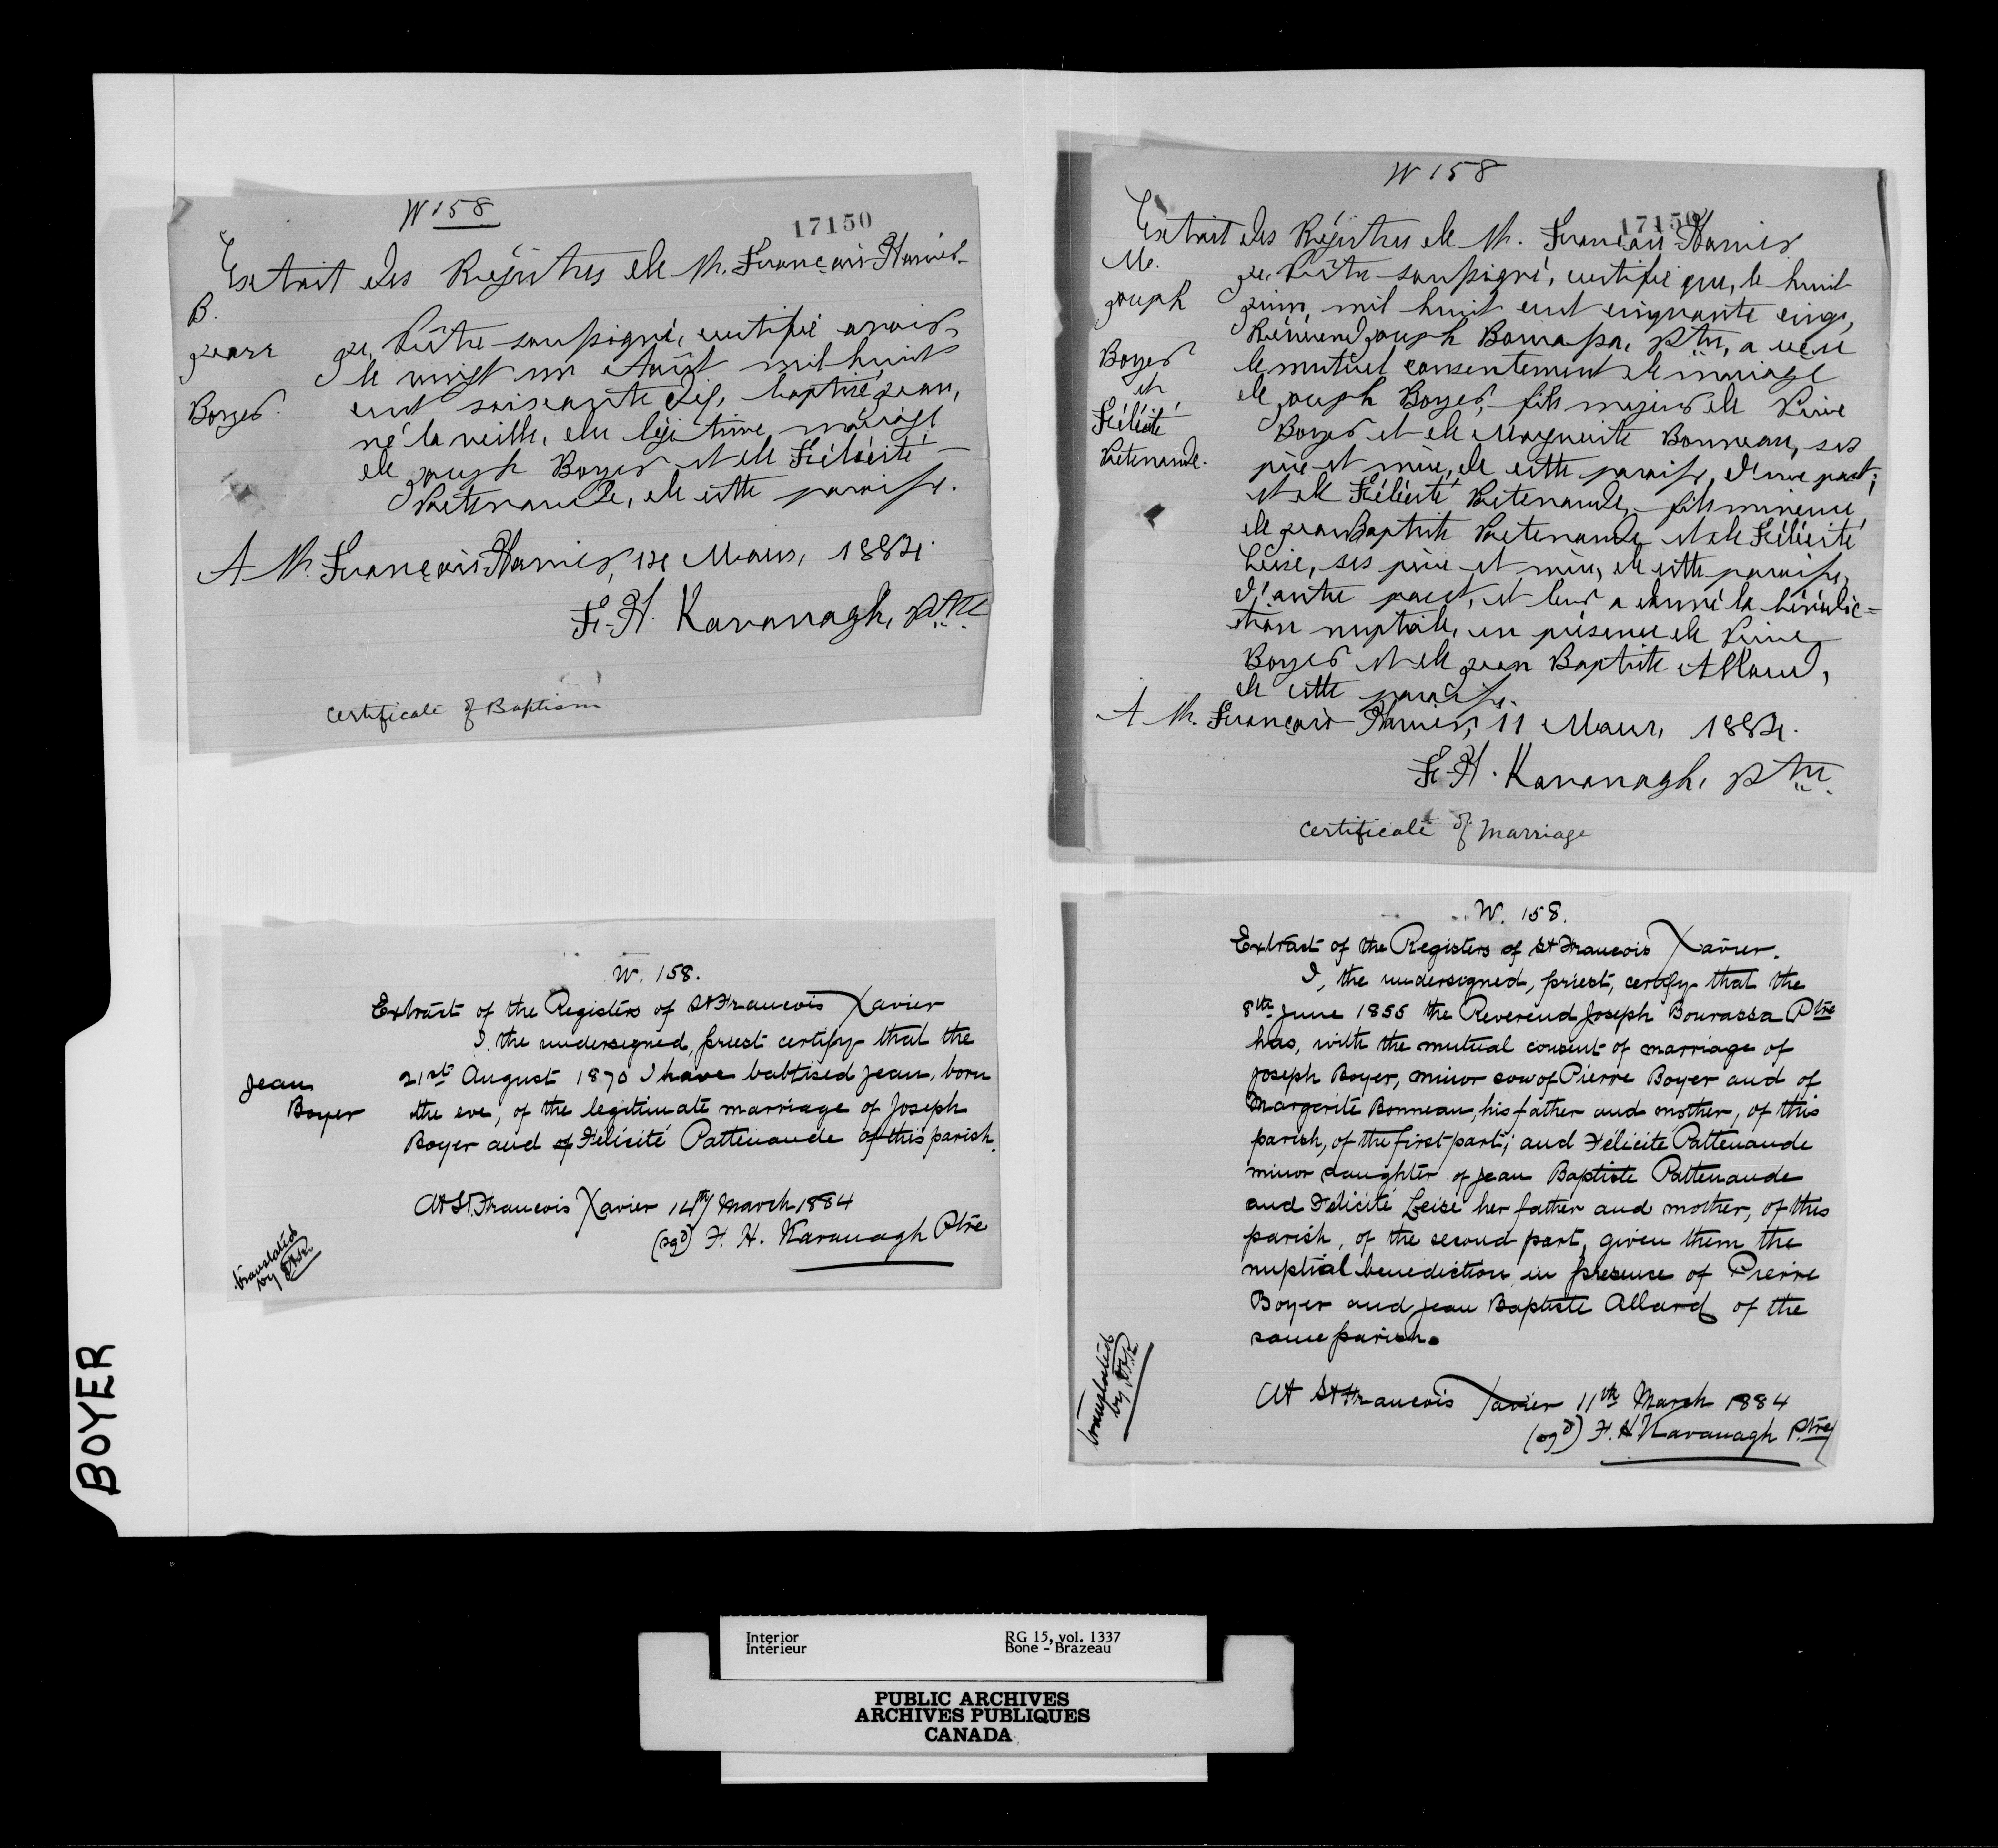 W 158
17150
Extrait des Régistres de St. François-Xavier
B.
Jean
Boyer.
Je, Prêtre soussigné, certifie avoir,
le vingt un Août mil huit
cent soixante dix, baptisé Jean,
né la veille, du légitime mariage
de Joseph Boyer et de Félicité
Patenaude, de cette paroisse.
A St. François-Xavier, 14 Mars, 1884.
F.-H. Kavanagh, Ptre.
Certificate of Baptism
W 158
17150
Extrait des Régistres de St. François-Xavier
M.
Joseph
Boyer
et
Félicité
Patenaude.
Je, Prêtre soussigné, certifie que, le huit
Juin, mil huit cent cinquante cinq,
Révérend Joseph Bourassa, Ptre, a reçu
le mutuel consentement de mariage
de Joseph Boyer, fils majeur de Pierre
Boyer et de Marguerite Bonneau, ses
père et mère, de cette paroisse, d'une part;
et de Félicité Patenaude, fille mineure
de Jean Baptiste Patenaude et de Félicité
Leizé, ses père et mère, de cette paroisse,
d'autre part, et leur a donné la bénédic=
tion nuptiale, en présence de Pierre
Boyer et de Jean Baptiste Allard,
de cette paroisse.
A St. François-Xavier, 11 Mars, 1884.
F.-H. Kavanagh, Ptre.
Certificate of Marriage
W. 158.
Extract of the Registers of St Francois Xavier
I, the undersigned, priest certify that the
21st August 1870 I have babtised Jean, born
the eve, of the legitimate marriage of Joseph
Boyer and of Félicité Pattenaude of this parish.
Jean
Boyer
At St. Francois Xavier 14th March 1884
(sgd) F. H. Kavanagh Ptre
translated
by
W. 158.
Extract of the Registers of St Francois Xavier.
I, the undersigned, priest, certify that the
8th June 1855 the Reverend Joseph Bourassa Ptre
has, with the mutual consent of marriage of
Joseph Boyer, minor son of Pierre Boyer and of
Margarite Bonneau, his father and mother, of this
parish, of the first part; and Félicité Pattenaude
minor daughter of Jean Baptiste Pattenaude
and Félicité Leizé her father and mother, of this
parish, of the second part, given them the
nuptial benediction in presence of Pierre
Boyer and Jean Baptiste Allard of the
same parish.
At St Francois Xavier 11th March 1884
(sgd) F. H Kavanagh Ptre
translated
by
BOYER
Interior
Intérieur
RG 15, vol. 1337
Bone - Brazeau
PUBLIC ARCHIVES
ARCHIVES PUBLIQUES
CANADA